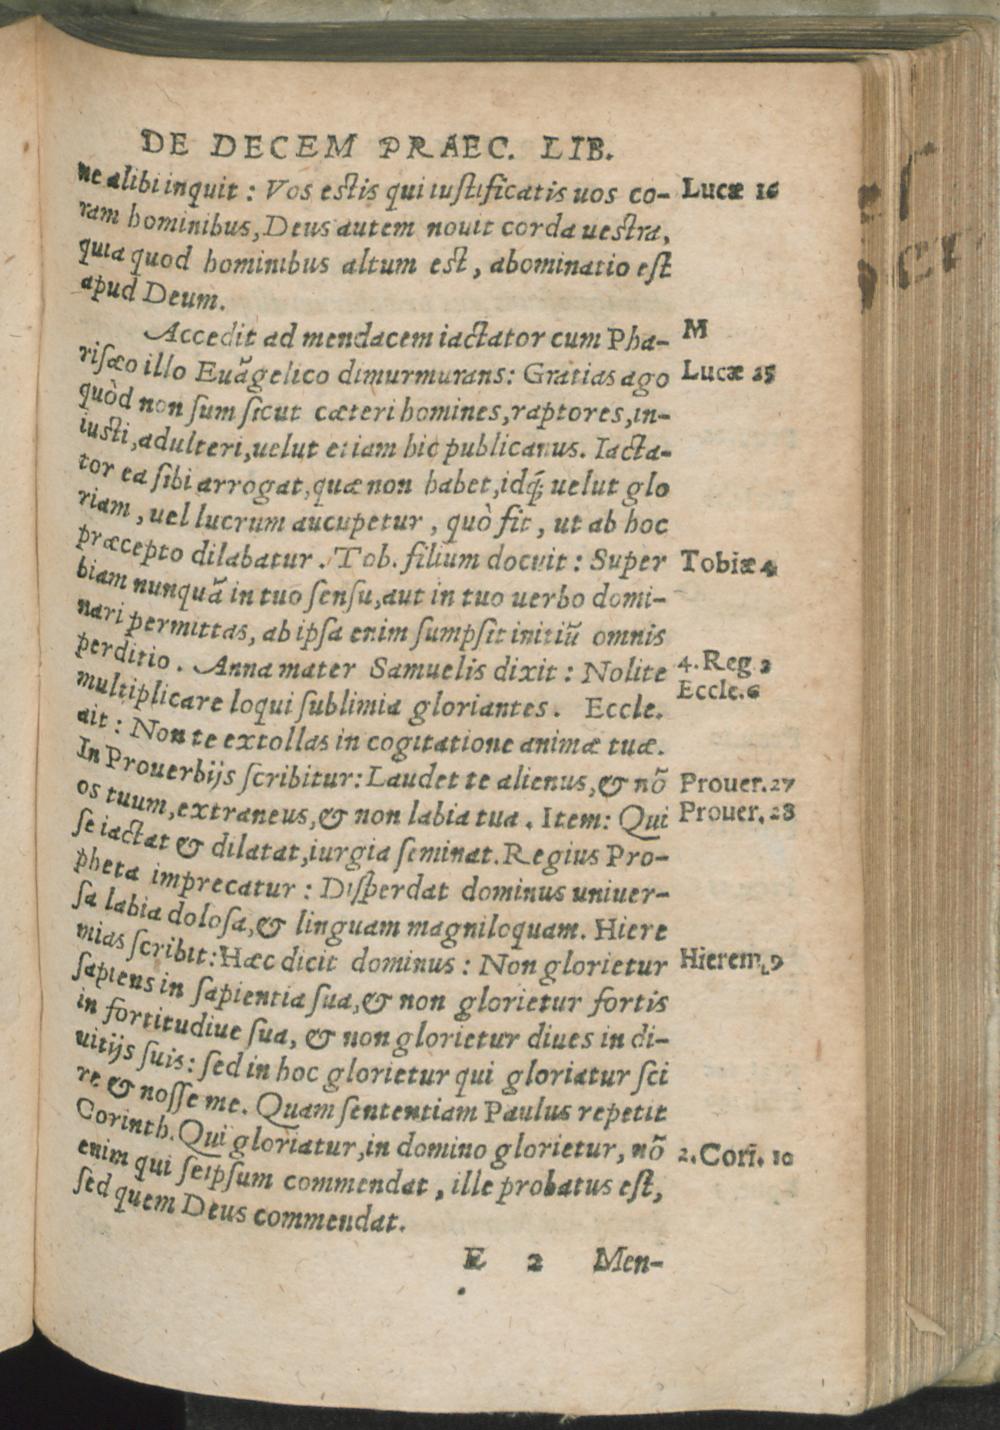 DE DECEM PRAEC. LIB.
ne alibi inquit : Vos estis qui iustificatis uos co- Lucæ 16
ram hominibus, Deus autem nouit corda uestra,
quia quod hominibus altum est, abominatio est
apud Deum.
Accedit ad mendacem iactator cum Pha- M
risæo illo Euãgelico dimurmurans: Gratias ago Lucæ 25
quòd non sum sicut cæteri homines, raptores, in-
iusti, adulteri, uelut etiam hic publicanus. Iacta-
tor ea sibi arrogat, quæ non habet, idq́; uelut glo
riam, uel lucrum aucupetur, quò fit, ut ab hoc
præcepto dilabatur. Tob. filium docuit : Super Tobiæ 4
biam nunquã in tuo sensu, aut in tuo uerbo domi-
nari permittas, ab ipsa enim sumpsit initiũ omnis
perditio. Anna mater Samuelis dixit : Nolite 4. Reg. 2
multiplicare loqui sublimia gloriantes. Eccle. Eccle. 6
ait : Non te extollas in cogitatione animæ tuæ.
In Prouerbijs scribitur: Laudet te alienus, & nõ Prouer. 27
os tuum, extraneus, & non labia tua. Item: Qui Prouer. 28
se iactat & dilatat, iurgia seminat. Regius Pro-
pheta imprecatur : Disperdat dominus uniuer-
sa labia dolosa, & linguam magniloquam. Hiere
mias scribit: Hæc dicit dominus : Non glorietur Hierem. 9
sapiens in sapientia sua, & non glorietur fortis
in fortitudiue sua, & non glorietur diues in di-
uitijs suis: sed in hoc glorietur qui gloriatur sci
re & nosse me. Quam sententiam Paulus repetit
Corinth. Qui gloriatur, in domino glorietur, nõ 2. Cori. 10
enim qui seipsum commendat, ille probatus est,
sed quem Deus commendat.
E 2 Men-